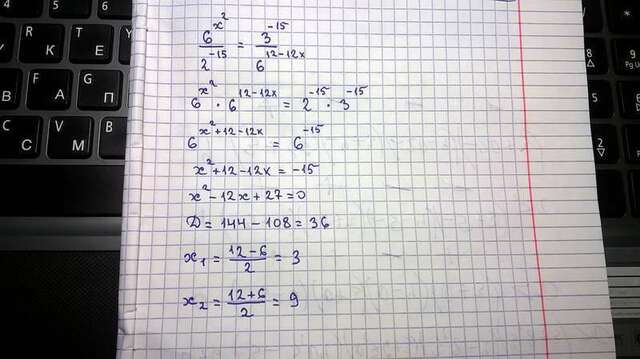 6^{x^2} / 2^{-15} = 3^{-15} / 6^{12-12x}
6^{x^2} · 6^{12-12x} = 2^{-15} · 3^{-15}
6^{x^2+12-12x} = 6^{-15}
x^2+12-12x = -15
x^2-12x+27=0
D=144-108=36
x_1 = (12-6)/2 = 3
x_2 = (12+6)/2 = 9
4
R
T
Y
E
К
Е
Н
F
G
А
П
C
V
С
М
9
Pg Up
6
2